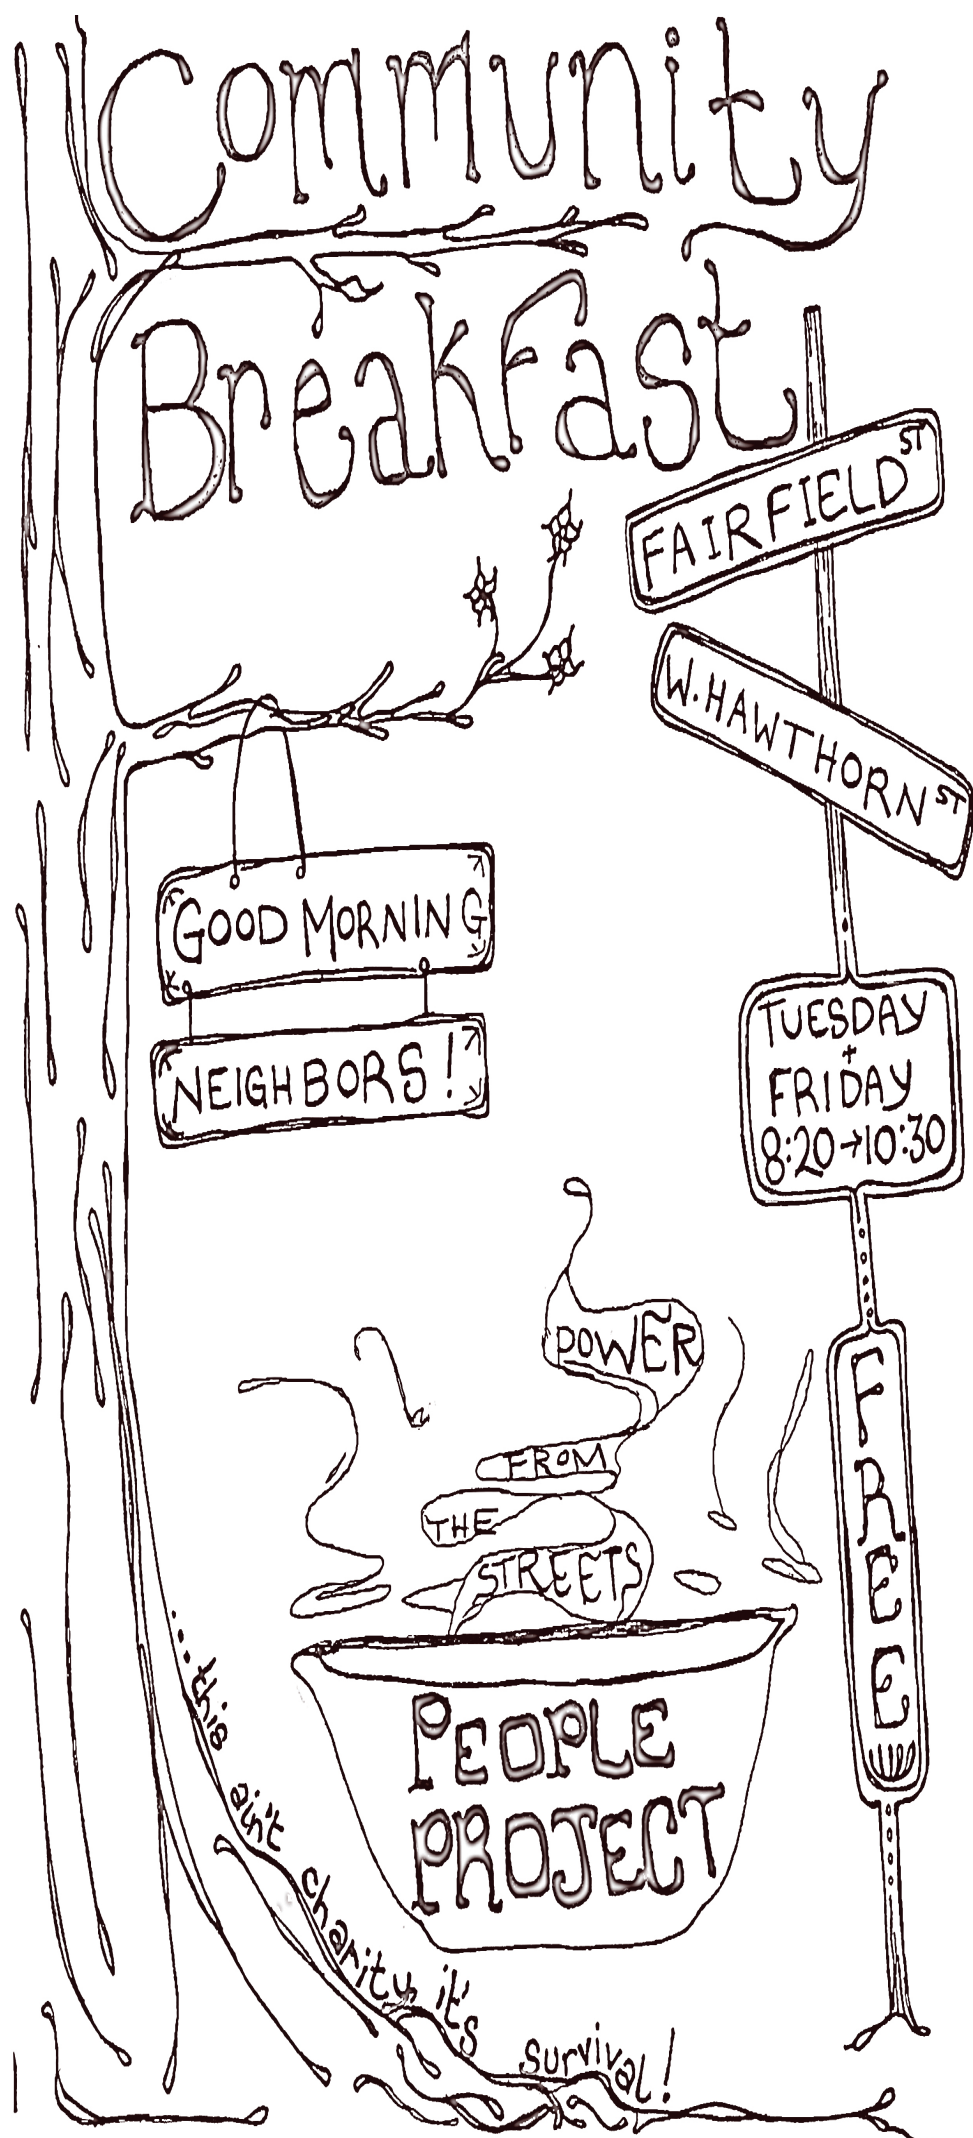 Community
Breakfast
FAIRFIELD ST
W. HAWTHORN ST
GOOD MORNING
NEIGHBORS!
TUESDAY
+
FRIDAY
8:20→10:30
FREE
POWER
FROM
THE
STREETS
PEOPLE
PROJECT
...this ain't charity, it's survival!